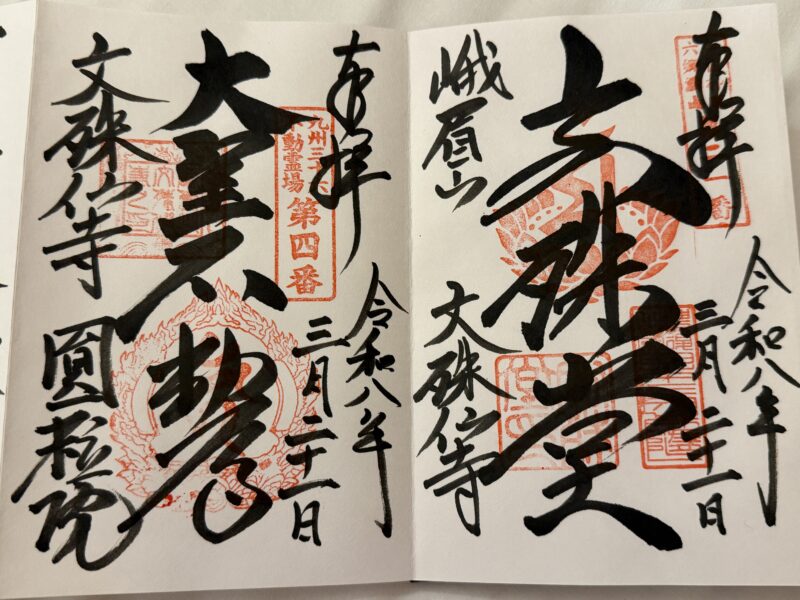 奉拝
令和八年
三月二十一日
文殊堂
峨眉山
文殊仙寺
奉拝
令和八年
三月二十一日
九州三十六
不動霊場
第四番
大聖不動
文殊仙寺